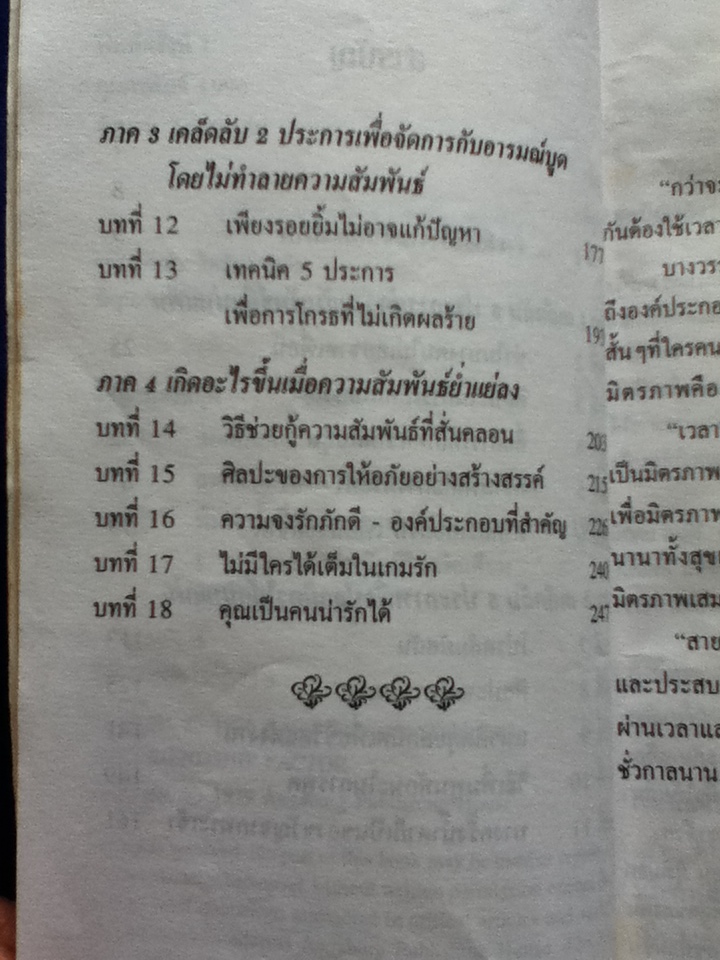 ภาค 3 เคล็ดลับ 2 ประการเพื่อจัดการกับอารมณ์บูด
โดยไม่ทำลายความสัมพันธ์
บทที่ 12 เพียงรอยยิ้มไม่อาจแก้ปัญหา 177
บทที่ 13 เทคนิค 5 ประการ
เพื่อการโกรธที่ไม่เกิดผลร้าย 191
ภาค 4 เกิดอะไรขึ้นเมื่อความสัมพันธ์ย่ำแย่ลง
บทที่ 14 วิธีช่วยกู้ความสัมพันธ์ที่สั่นคลอน 203
บทที่ 15 ศิลปะของการให้อภัยอย่างสร้างสรรค์ 215
บทที่ 16 ความจงรักภักดี - องค์ประกอบที่สำคัญ 226
บทที่ 17 ไม่มีใครได้เต็มในเกมรัก 240
บทที่ 18 คุณเป็นคนน่ารักได้ 247
“กว่าจะ
กันต้องใช้เวลา
บางวรร
ถึงองค์ประกอ
สั้นๆที่ใครคน
มิตรภาพคือ
“เวลา
เป็นมิตรภาพ
เพื่อมิตรภาพ
นานาทั้งสุข
มิตรภาพเสม
“สาย
และประสบ
ผ่านเวลาแล
ชั่วกาลนาน